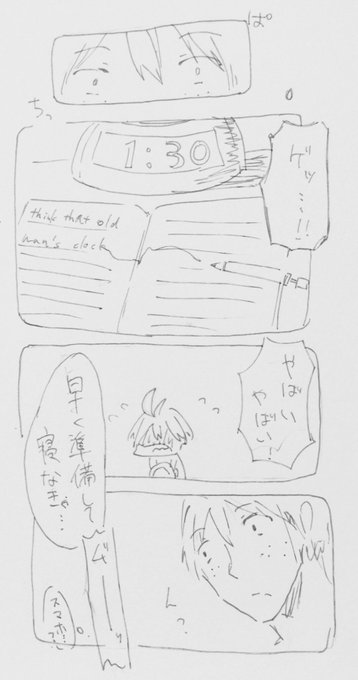 ぱ
ちっ
1:30
ゲッ…!!
think that old
man's clock
やばい
やばい!
早く準備して
寝なきゃ…
ん
っ